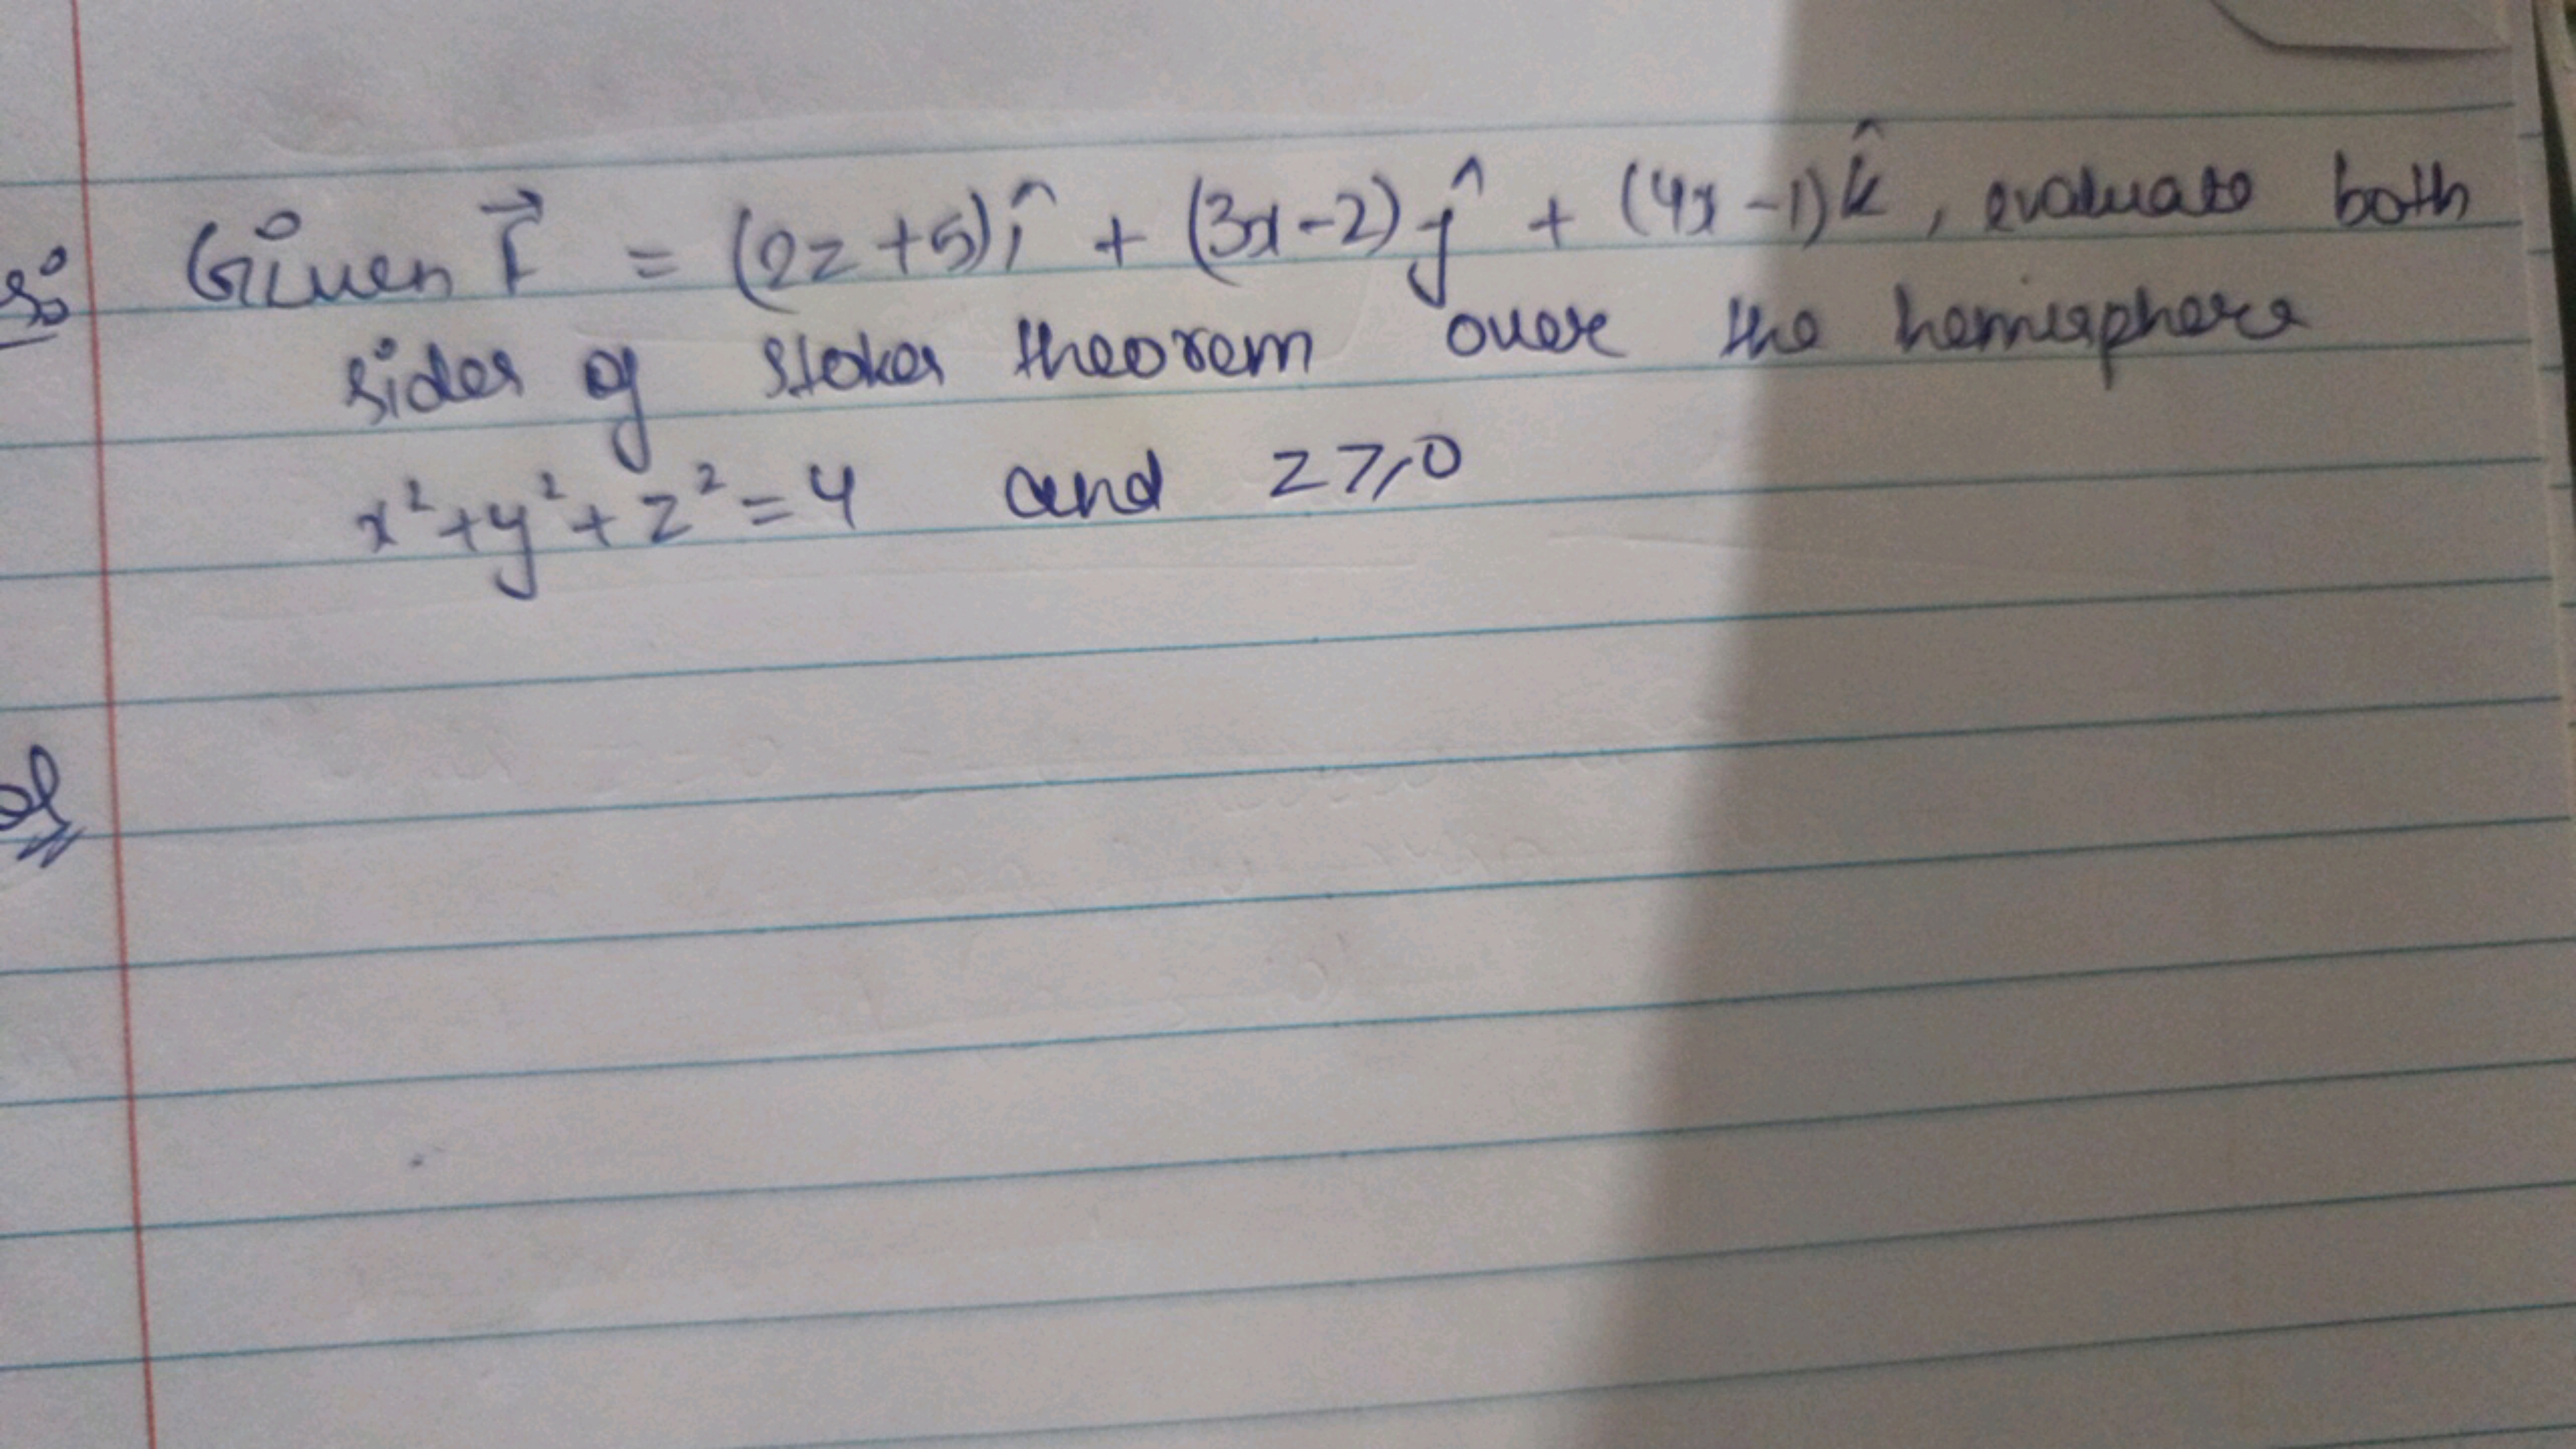 Given F⃗ = (2z+5)î + (3x-2)ĵ + (4x-1)k̂, evaluate both
sides of stokes theorem over the hemisphere
x²+y²+z²=4 and z≥0